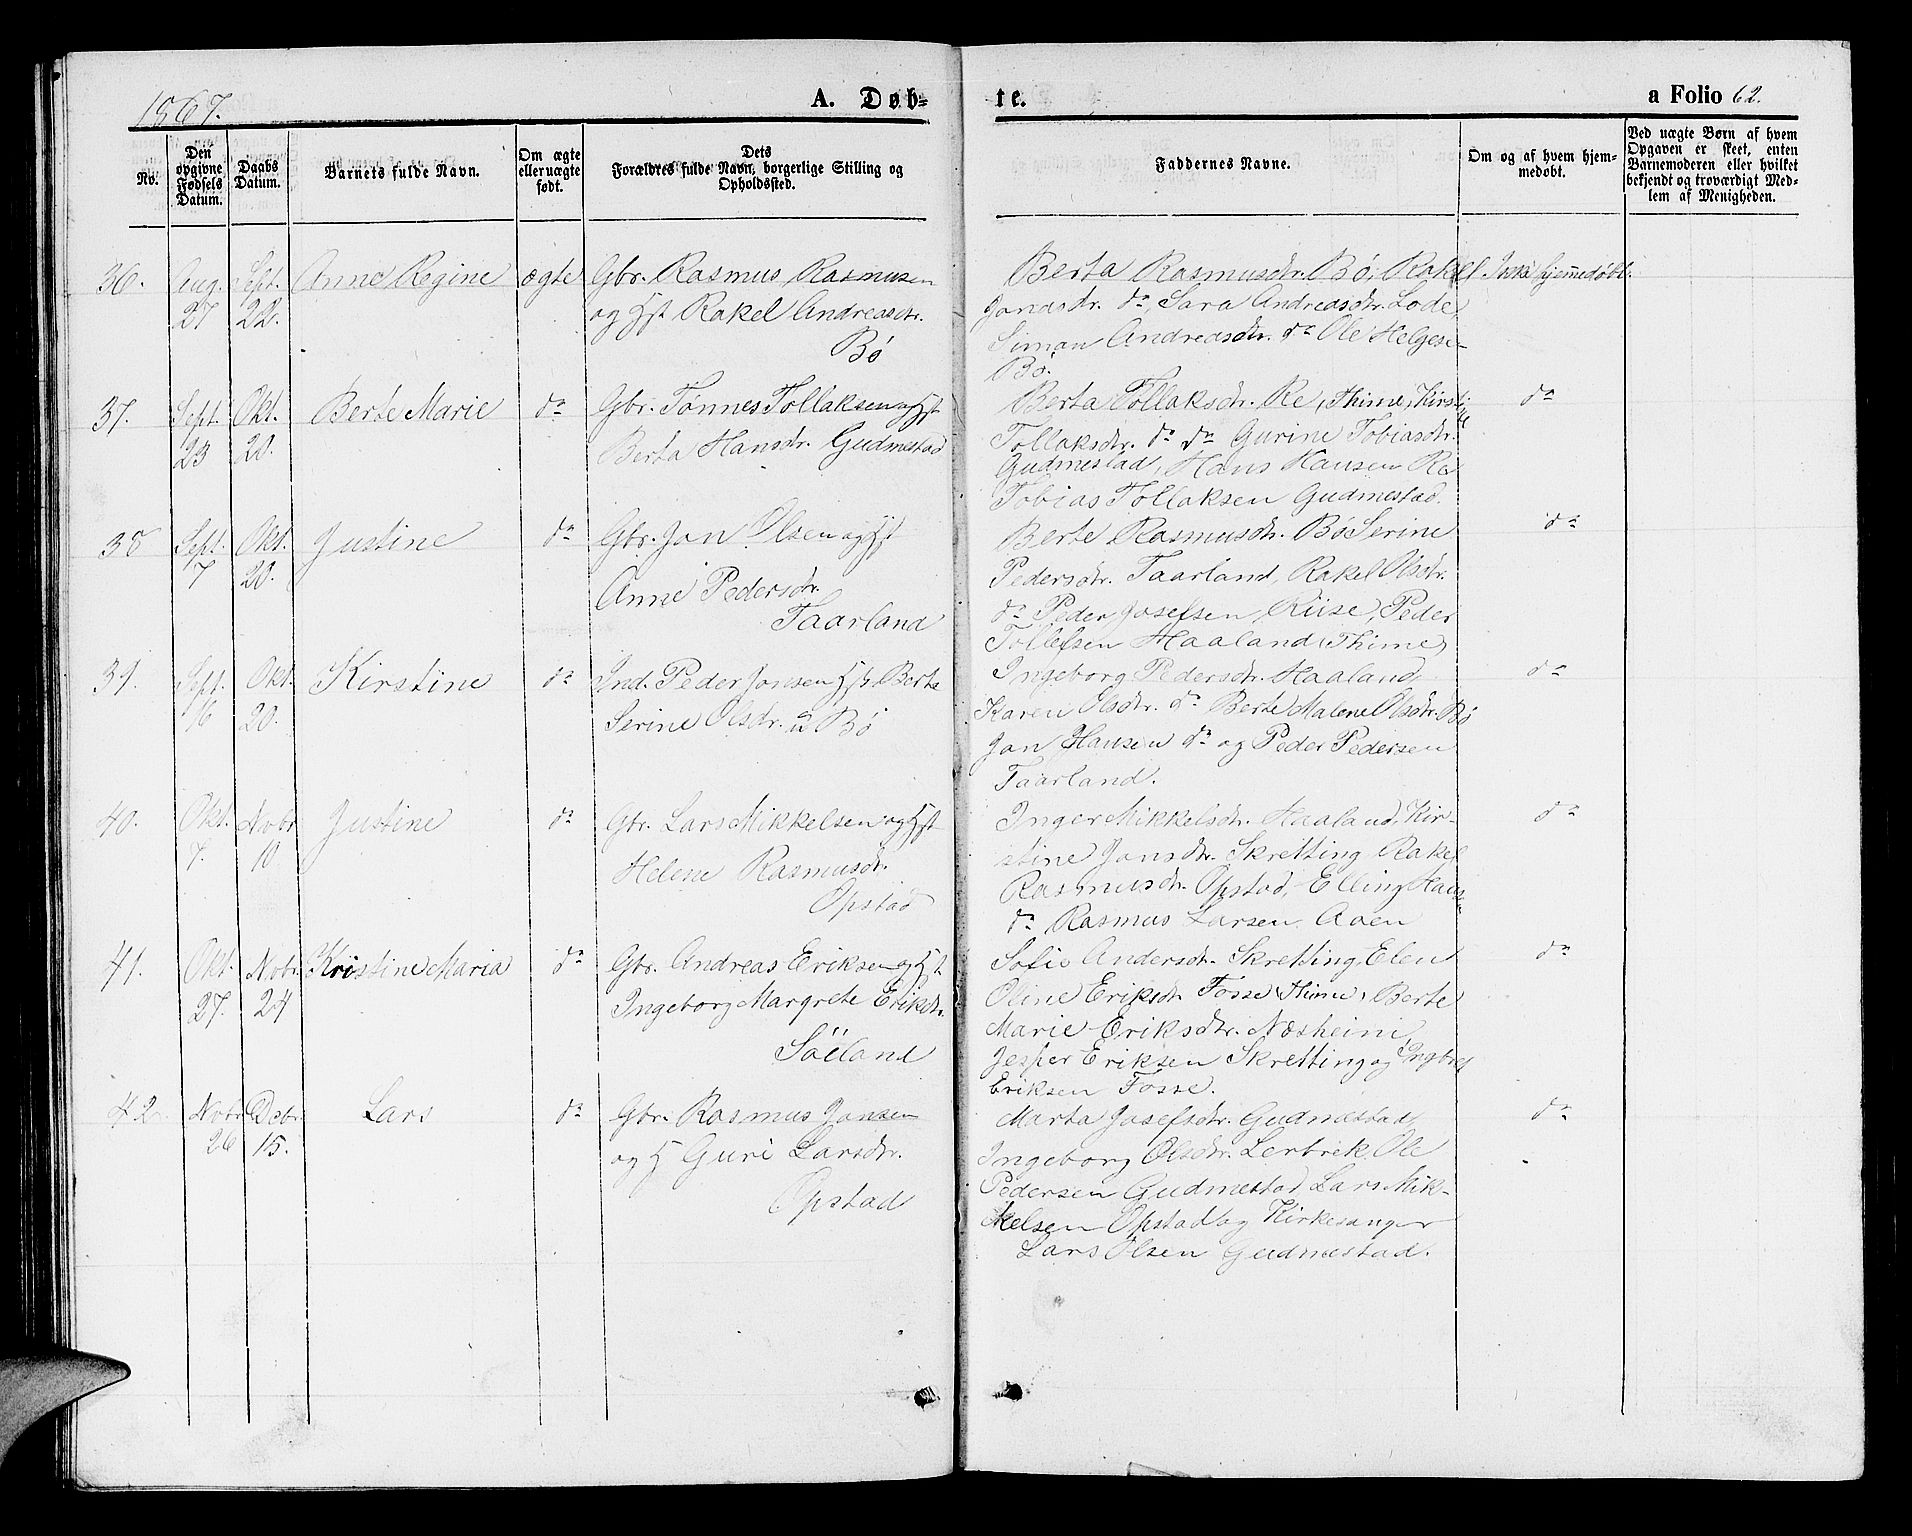 1867.
A. Døb-
te.
a Folio 62.
No.
Den
opgivne
Fødsels
Datum.
Daabs
Datum.
Barnets fulde Navn.
Om ægte
eller uægte
født.
Dets
Forældres fulde Navn, borgerlige Stilling og
Opholdssted.
Faddernes Navne.
Om og af hvem hjem-
medøbt.
Ved uægte Børn af hvem
Opgaven er skeet, enten
Barnemoderen eller hvilket
bekjendt og troværdigt Med-
lem af Menigheden.
36.
Aug.
27
Sept.
22.
Anne Regine
ægte
Gbr. Rasmus Rasmusen
og Hst Rakel Andreasdr.
Bø
Berta Rasmusdr. Bø, Rakel
Jonasdr. do, Sara Andreasdtr. Lode,
Siman Andreasdtr. do Ole Helgese-
Bø.
Ikke hjemmedøbt.
37.
Sept.
23
Okt.
20.
Berte Marie
do
Gbr. Tønnes Tollaksen og Hst
Berta Hansdr. Gudmestad
Berta Tollaksdr. Re, Thime, Kirsti
Tollaksdtr. do do Gurine Tobiasdtr.
Gudmestad, Hans Hansen Re
Tobias Tollaksen Gudmestad.
do
38
Sept.
7
Okt.
20.
Justine
do
Gbr. Jon Olsen og Hst
Anne Pedersdr.
Taarland
Berte Rasmusdr. Bø Serine
Pedersdtr. Taarland, Rakel Olsdtr.
do Peder Josefsen, Riise, Peder
Tollefsen Haaland, Thime,
do
39.
Sept.
16
Okt.
20.
Kirstine
do
Ind. Peder Jonsen Hst. Berta
Serine Olsdr. a Bø
Ingeborg Pedersdtr. Haaland,
Karen Olsdtr. do Berte Malene Olsdtr. Bø
Jon Hansen do og Peder Pedersen
Taarland.
do
40.
Okt.
7.
Nobr
10
Justine
do
Gbr. Lars Mikkelsen og Hst
Helene Rasmusdr.
Opstad
Inger Mikkelsdtr. Haaland, Kir-
stine Jonsdtr. Skretting Rakel
Rasmusdtr. Opstad, Elling Hansen
do Rasmus Larsen Aaen
do
41.
Okt.
27.
Nobr.
24
Kristine Maria
do
Gbr. Andreas Eriksen og Hst
Ingeborg Margrete Eriksdr.
Søiland
Sofie Andersdtr. Skretting, Elen
Oline Eriksdtr Fosse, Thime, Berte
Marie Eriksdtr. Næsheim,
Jesper Eriksen Skretting og Ingbret
Eriksen Fosse.
do
42
Nobr
26
Debr.
15.
Lars
do
Gbr. Rasmus Jonsen
og H Guri Larsdtr.
Opstad
Marta Josefsdtr. Gudmestad,
Ingeborg Olsdtr. Lerbrek, Ole
Pedersen Gudmestad, Lars Mik-
kelsen Opstad og Kirkesanger
Lars Olsen Gudmestad.
do